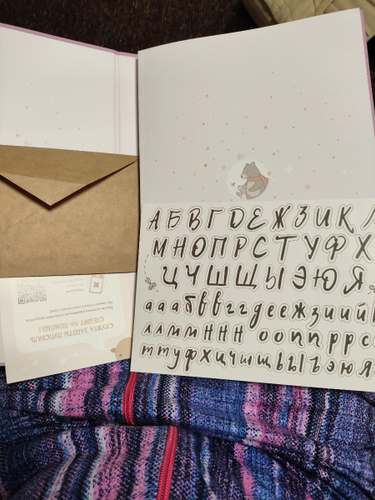 А Б В Г Д Е Ж З И К Л
М Н О П Р С Т У Ф Х
Ц Ч Ш Щ Ы Э Ю Я
а а а б в в г г д е е ж з и и й
л л м м н н н о о п п р р с
т т у ф х ц ч ш щ ь ы ъ э ю я
СЛУЖБА ЗАБОТЫ
СПЕШИТ НА ПОМОЩЬ!